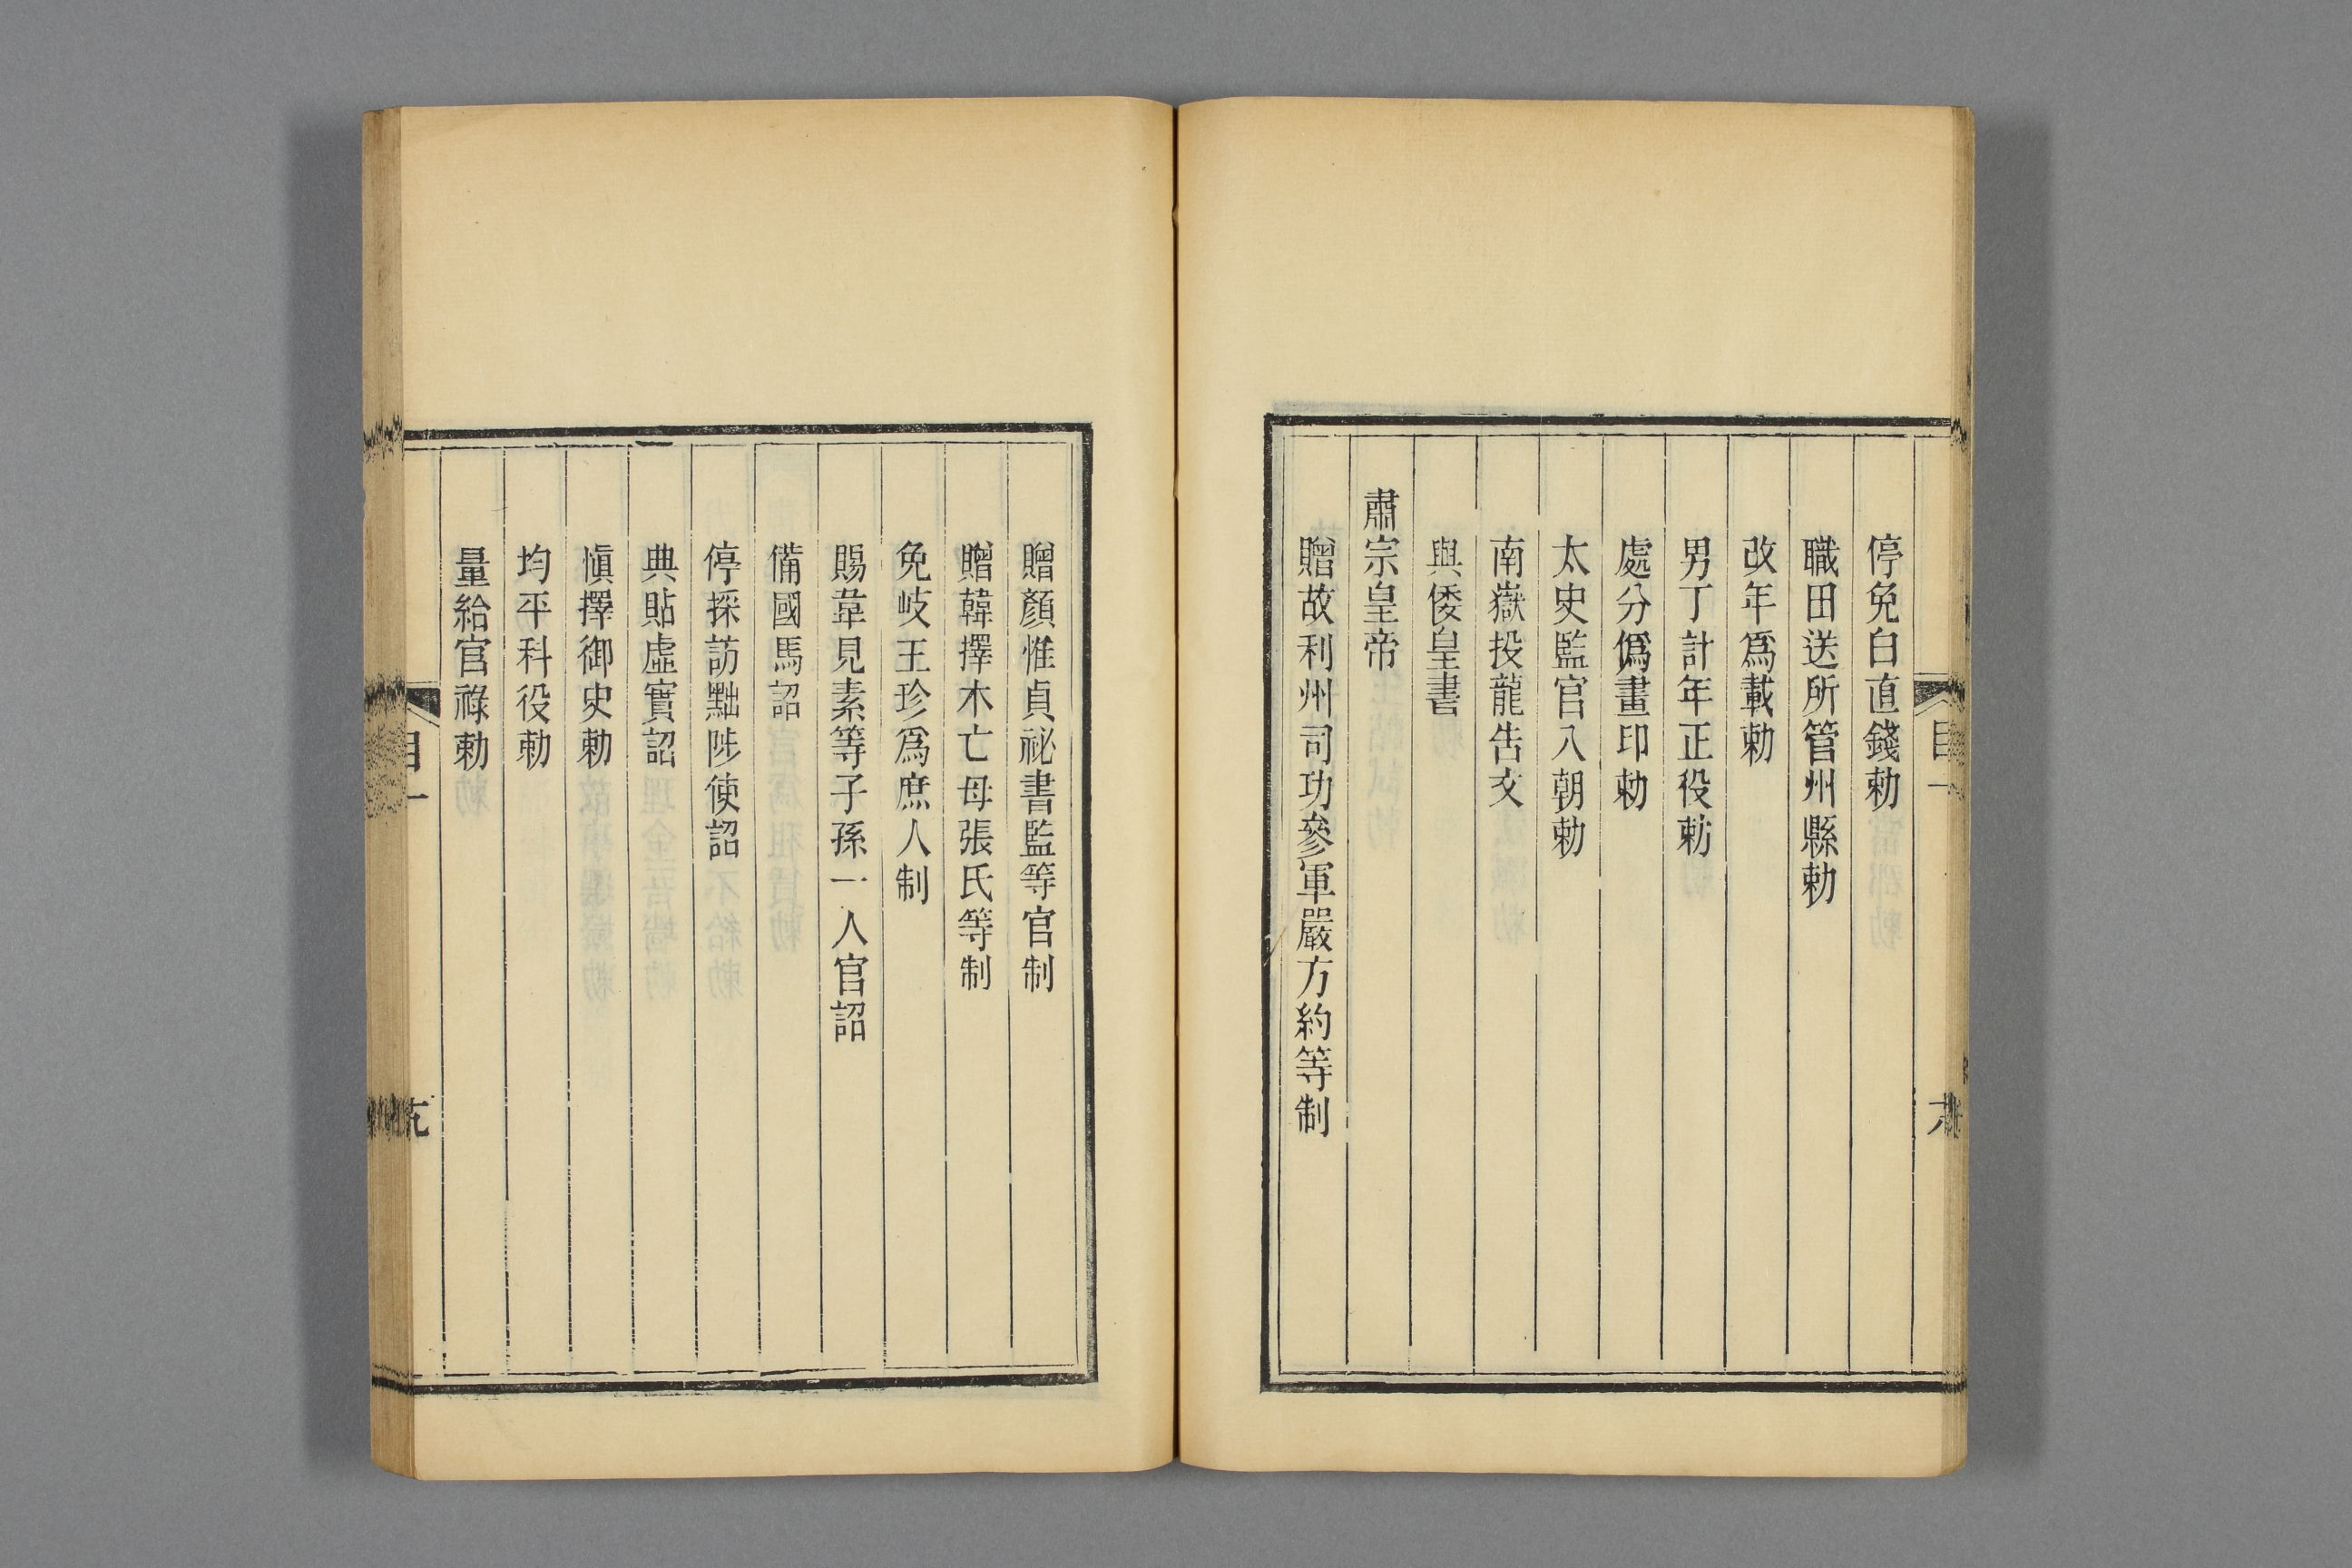 停免白直錢勅
職田送所管州縣勅
改年爲載勅
男丁計年正役勅
處分僞畫印勅
太史監官入朝勅
南嶽投龍告文
與倭皇書
肅宗皇帝
贈故利州司功參軍嚴方約等制
贈顏惟貞祕書監等官制
贈韓擇木亡母張氏等制
免岐王珍爲庶人制
賜韋見素等子孫一人官詔
備國馬詔
停採訪黜陟使詔
典貼虛實詔
愼擇御史勅
均平科役勅
量給官祿勅
目一